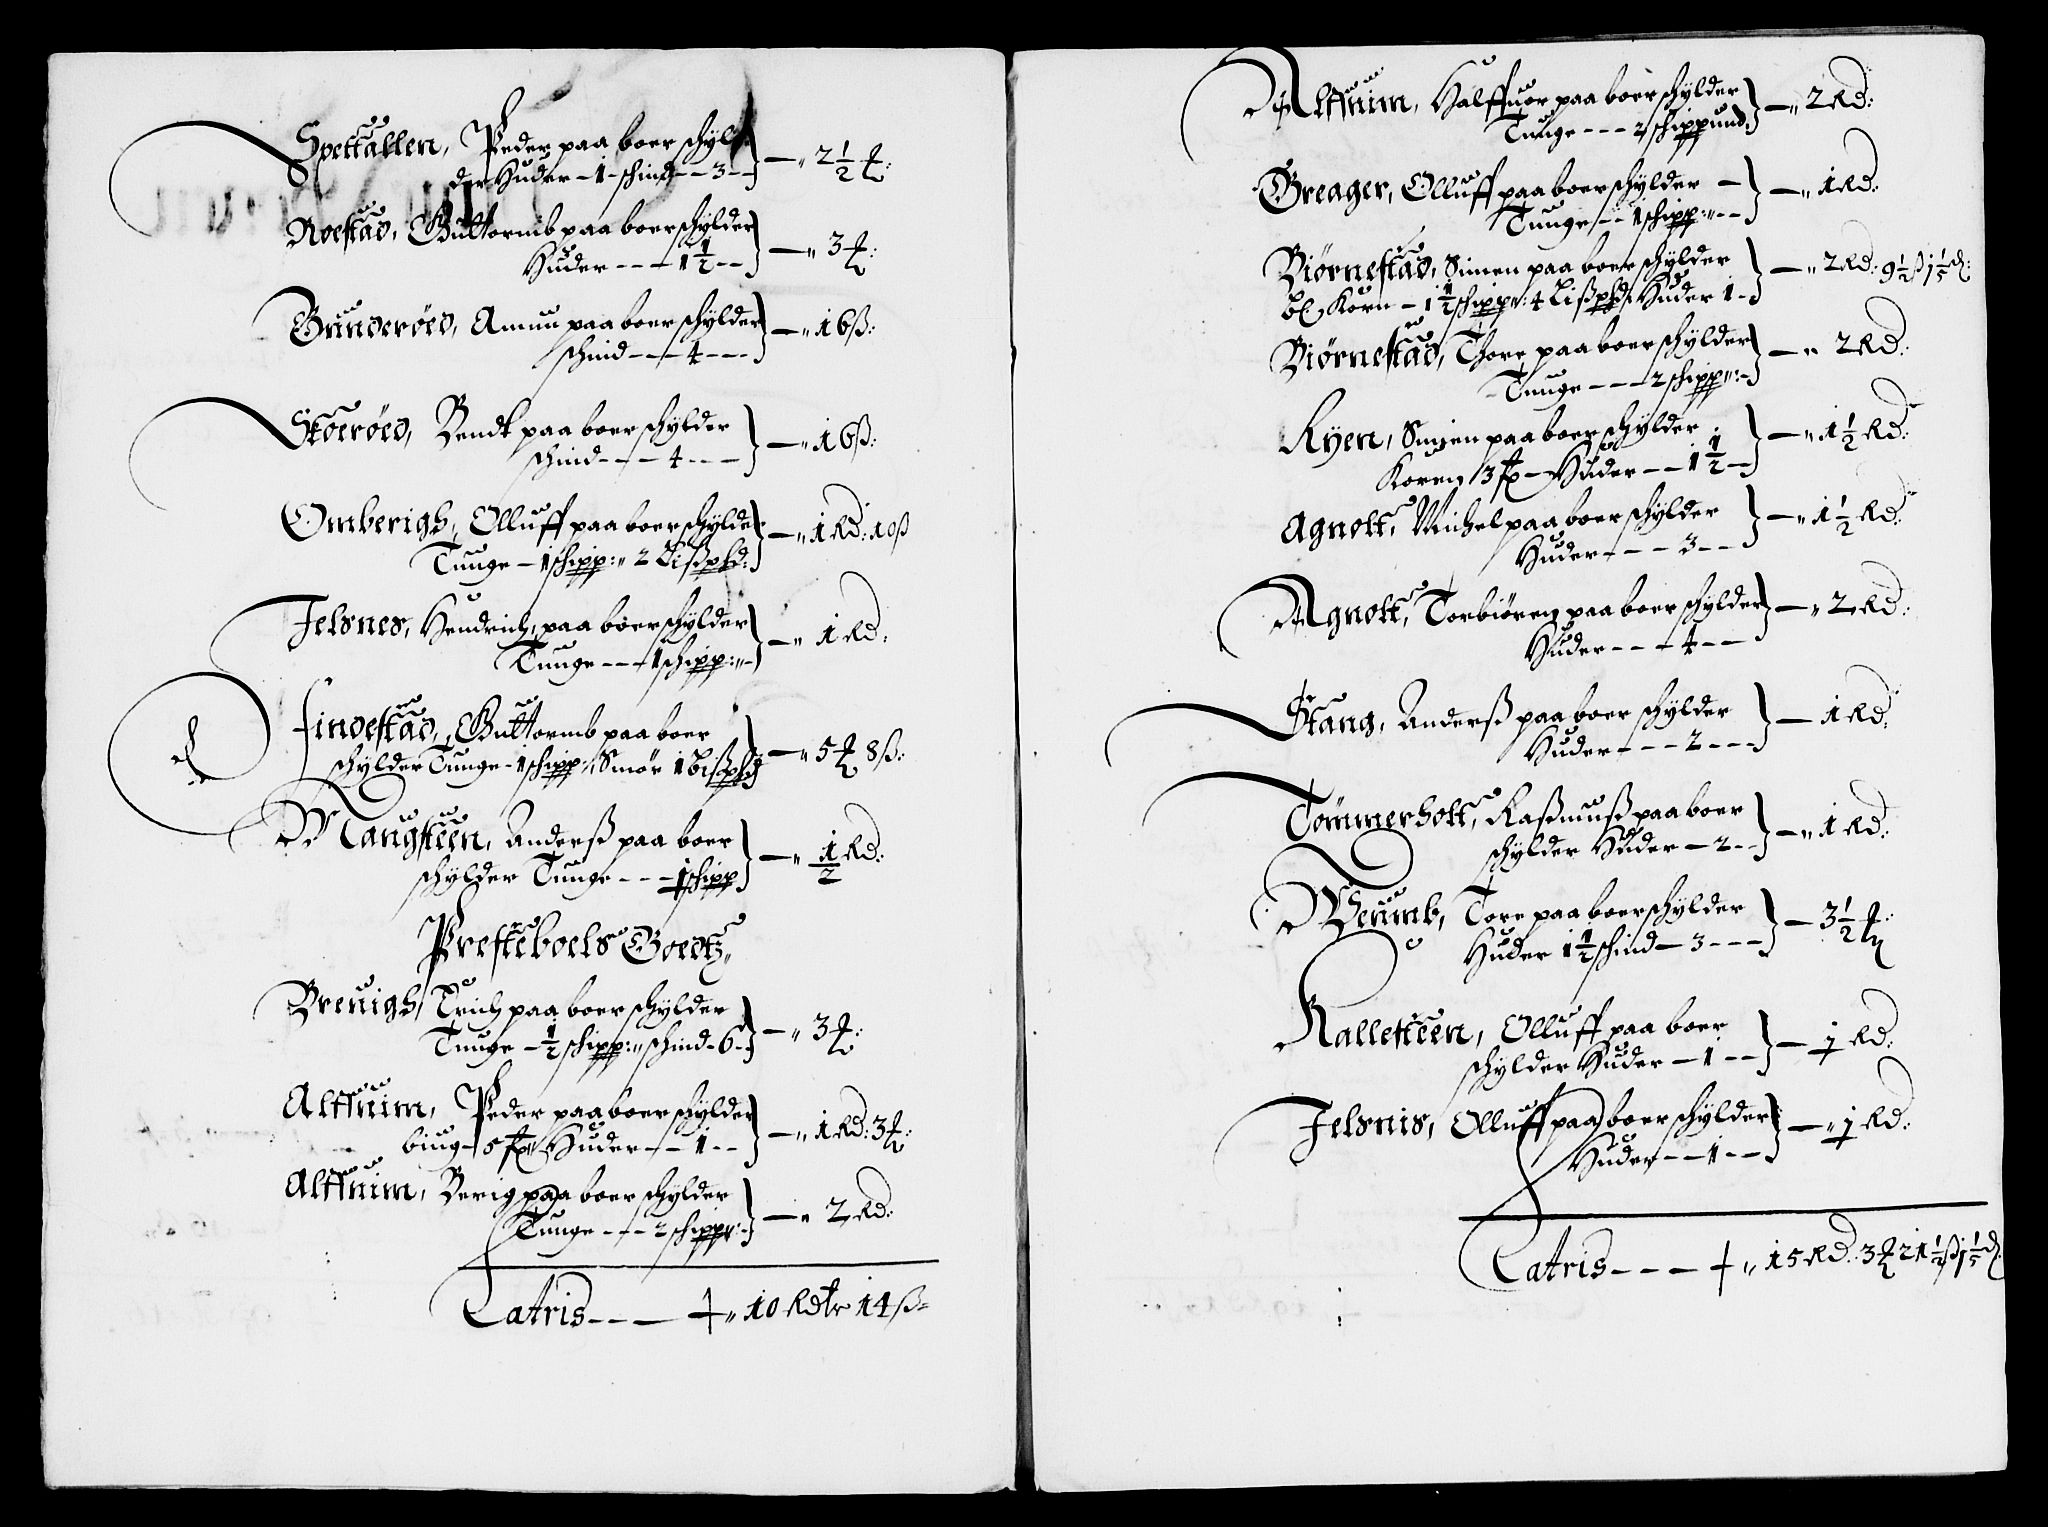 Spettallen, Peder paa boer schÿl-
der Huder - 1 - schind - - 3 - - } — „ 2 1/2 ꝉ:
Roestad, Guttormb paa boer schÿlder
Huder - - - 1 1/2 - - } — „ 3 ꝉ:
Gunderøed, Amun paa boer schÿlder
schind - - - 4 - - - } — „ 16 ß:
Skoerøed, Bendt paa boer schÿlder
schind - - - 4 - - - } — „ 16 ß:
Omberigh, Olluff paa boer schÿlder
Tunge - 1 schipp: „ 2 Lißphd: } — „ 1 Rd: 10 ß
Jelsnes, Hendrich, paa boer schÿlder
Tunge - - - 1 schipp: „ - } — „ 1 Rd:
Findestad, Guttormb paa boer
schÿlder Tunge - 1 schipp: Smør 1 Lißphd } — „ 5 ꝉ 8 ß:
Mangsteen, Anderß paa boer
schÿlder Tunge - - - 1 schipp } — „ 1/2 Rd:
Presteboels Goedtz „
Breuigh, Erich paa boer schÿlder
Tunge - 1/2 schipp: „ schind - 6 - } — „ 3 ꝉ:
Alffnim, Peder paa boer schÿlder
biug - 5 fp „ Huder - - 1 - - } — „ 1 Rd: 3 ꝉ:
Alffnim, Berig paa boer schÿlder
Tunge - - - 2 schipp: - } — „ 2 Rd:
Latris - - - — + „ 10 Rdlr 14 ß =
Alffnim, Halffuor paa boer schÿlder
Tunge - - - 2 schippund: } — „ 2 Rd:
Greager, Olluff paa boer schÿlder -
Tunge - - 1 schipp: „ - - } — „ 1 Rd:
Biørnestad, Simen paa boer schÿlder
bl: Korn - 1 1/2 schipp: 4 Lißphd: Huder 1 - } — „ 2 Rd: 9 1/2 ß 1 1/5 d:
Biørnestad, Thore paa boer schÿlder
Tunge - - - 2 schipp: - } — „ 2 Rd:
Rÿen, Simen paa boer schÿlder
Koren 3 fp - Huder - - 1 1/2 - } — „ 1 1/2 Rd:
Agnolt, Michel paa boer schÿlder
Huder - - - 3 - - } — „ 1 1/2 Rd:
Agnolt, Torbiøren paa boer schÿlder
Huder - - - 4 - - } — „ 2 Rd:
Stang, Anderß paa boer schÿlder
Huder - - - 2 - - - } — 1 Rd:
Tømmerholt, Raßmuß paa boer
schÿlder Huder - 2 - - } — „ 1 Rd:
Weumb, Tore paa boer schÿlder
Huder 1 1/2 schind - 3 - - - } — 3 1/2 ꝉ:
Kallesteen, Olluff paa boer
schÿlder Huder - 1 - - } — 1 Rd:
Jelsnis, Olluff paa boer schÿlder
Huder - - 1 - - } — „ 1 Rd:
Latris - - - — + „ 15 Rd: 3 ꝉ 21 1/2 ß 1 1/5 d: